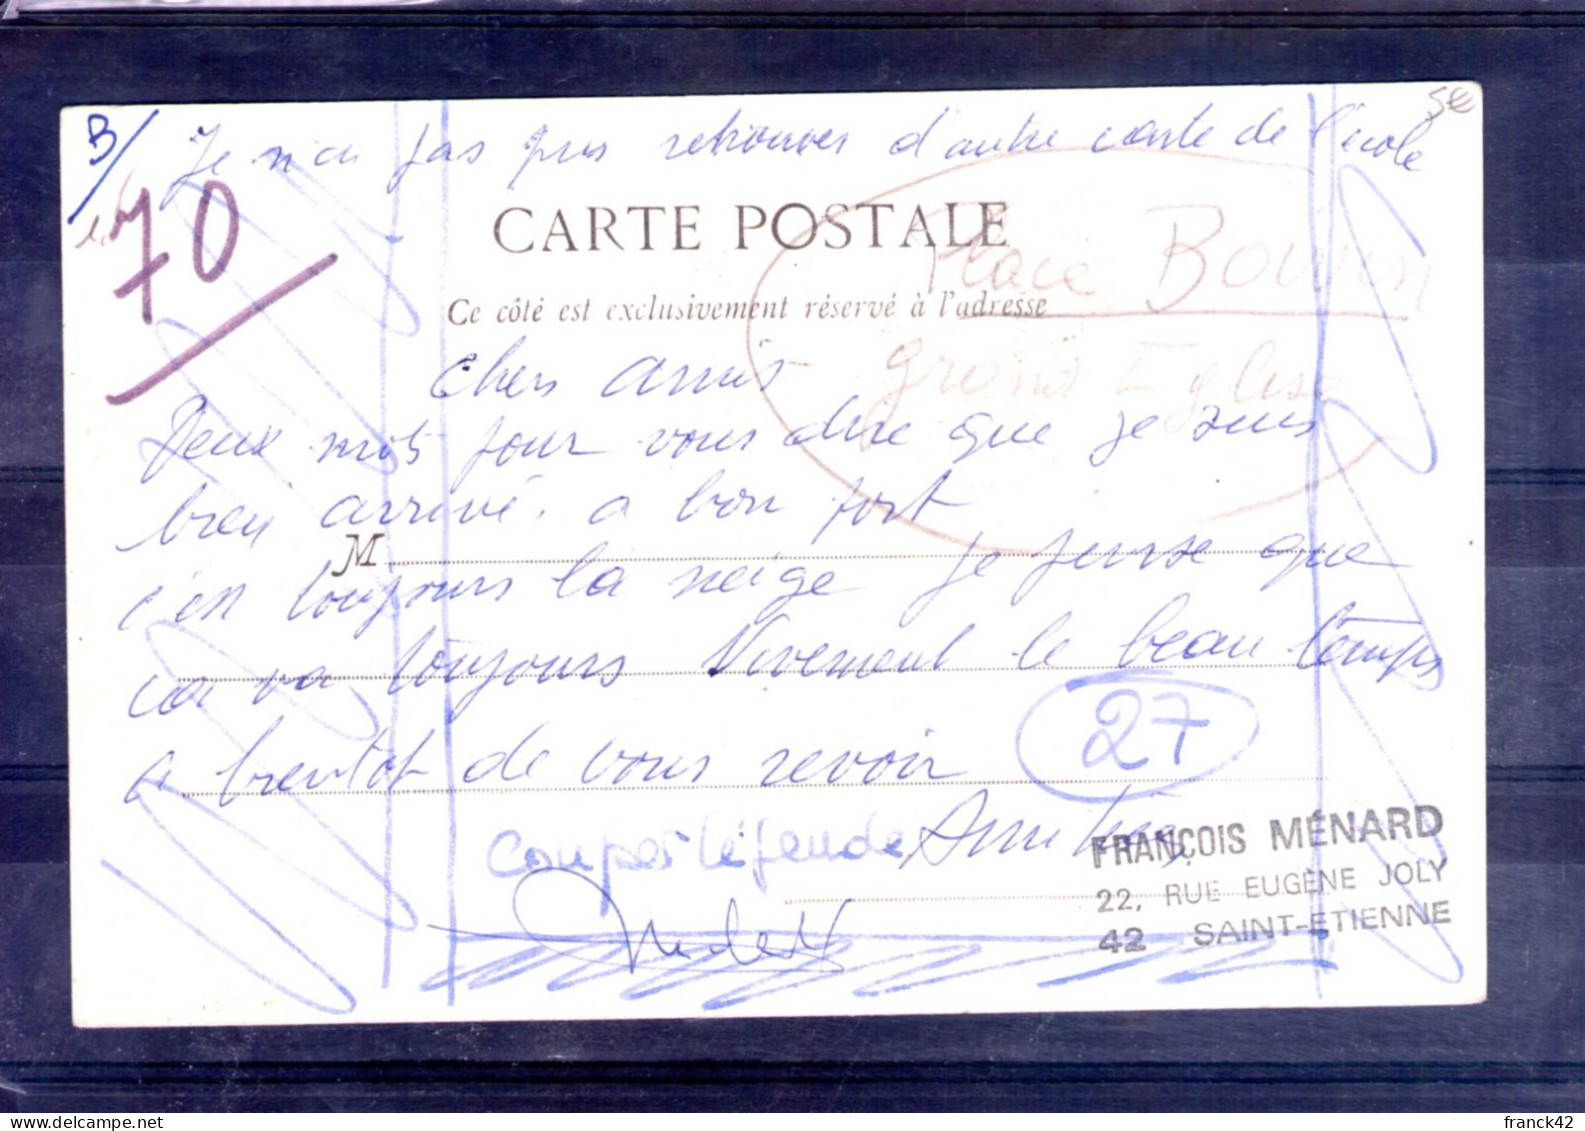 B/
5€
Je n'ai pas pus retrouver d'autre carte de l'école
70
CARTE POSTALE
Place Boivin
Ce côté est exclusivement réservé à l'adresse
Grand Eglise
Chers amis
Deux mots pour vous dire que je suis
bien arrivé. a bon port
M
c'est toujours la neige je pense que
ca va toujours Vivement le beau temps
a bientot de vous revoir
27
Amitiés
couper légende
FRANÇOIS MÉNARD
22, RUE EUGÈNE JOLY
42 SAINT-ETIENNE
delcampe.net
franck42